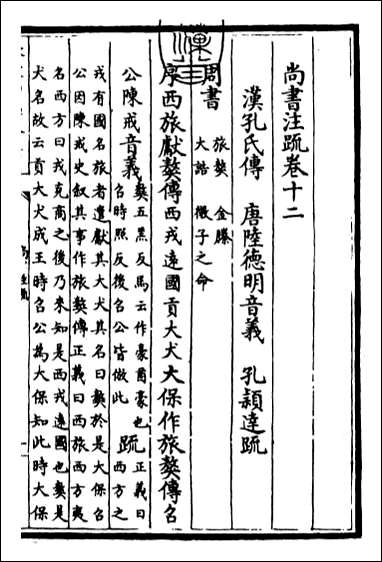 尚書注疏卷十二
漢孔氏傳　唐陸德明音義　孔穎達疏
周書
旅獒　金縢
大誥　微子之命
序西旅獻獒傳西戎遠國貢大犬大保作旅獒傳召
公陳戒音義獒五羔反馬云作豪酋豪也
召時照反後召公皆倣此疏正義曰
西方之
戎有國名旅者遣獻其大犬其名曰獒於是大保召
公因陳戒史叙其事作旅獒傳正義曰西旅西方夷
名西方曰戎克商之後乃來知是西戎遠國也獒是
犬名故云貢大犬成王時召公為大保知此時大保